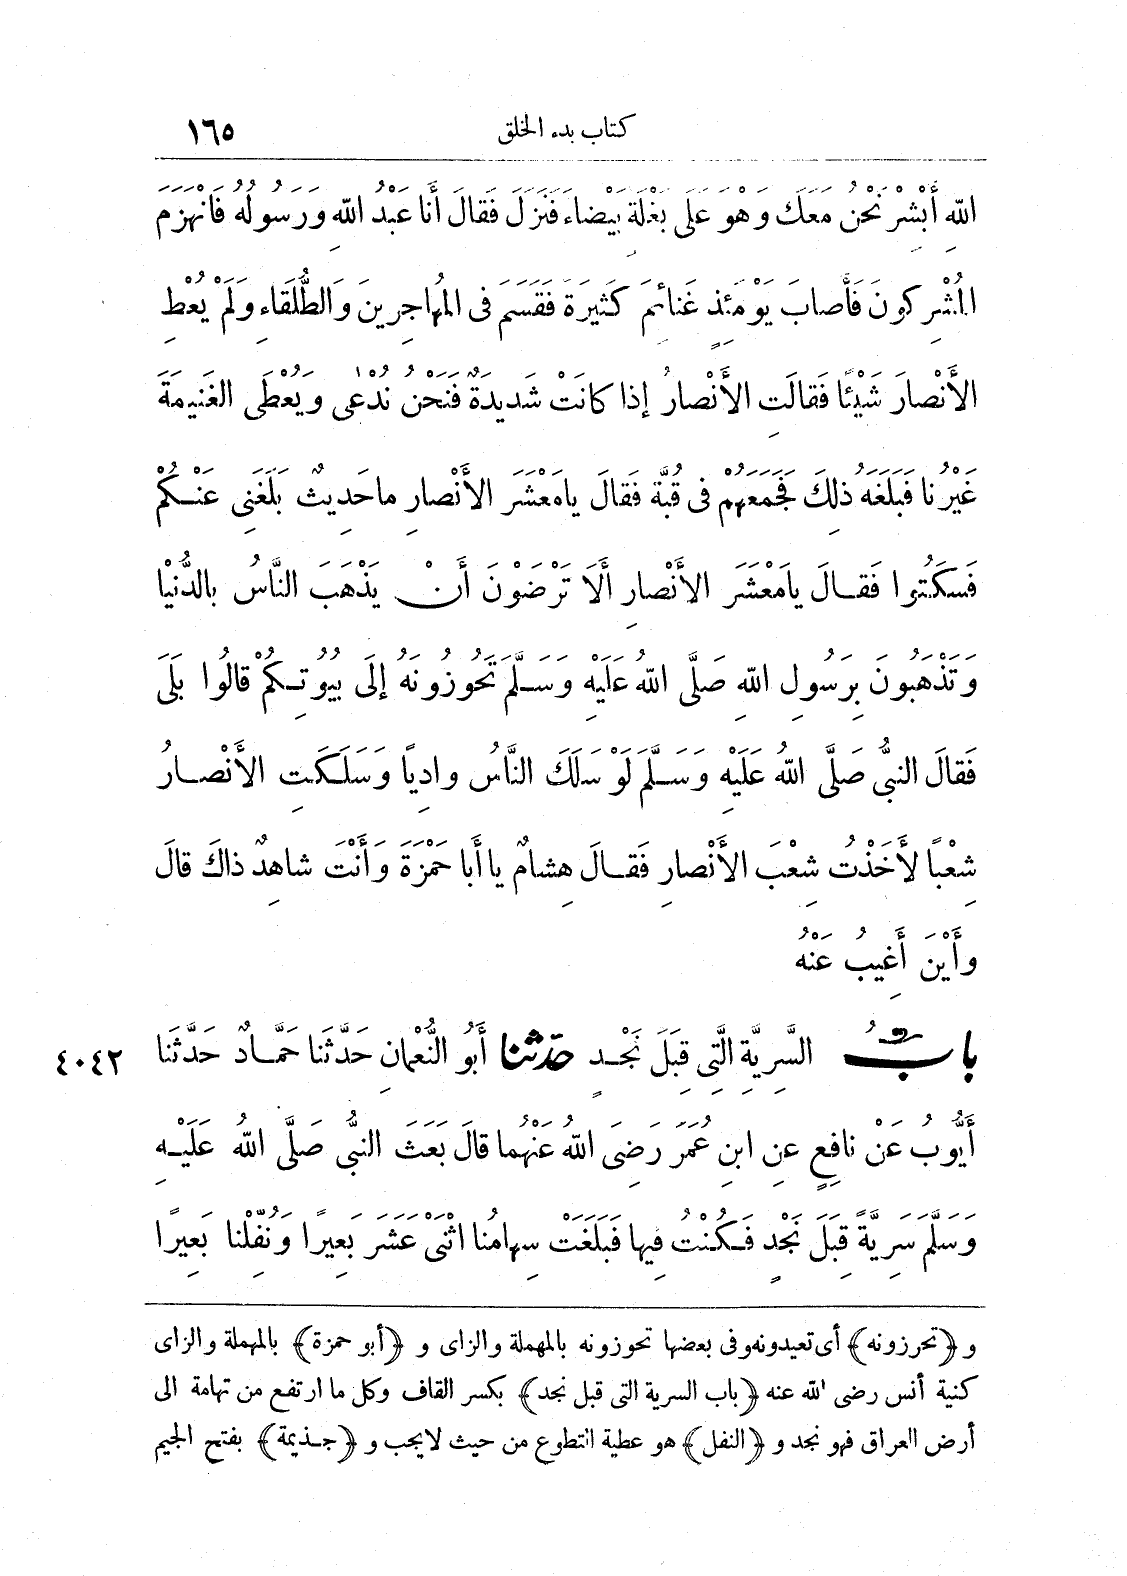 كتاب بدء الخلق ١٦٥
اللهِ أَبْشِرْ نَحْنُ مَعَكَ وَهْوَ عَلَى بَغْلَةٍ بَيْضَاءَ فَنَزَلَ فَقَالَ أَنَا عَبْدُ اللهِ وَرَسُولُهُ فَانْهَزَمَ
الْمُشْرِكُونَ فَأَصَابَ يَوْمَئِذٍ غَنَائِمَ كَثِيرَةً فَقَسَمَ فِى الْمُهَاجِرِينَ وَالطُّلَقَاءِ وَلَمْ يُعْطِ
الأَنْصَارَ شَيْئًا فَقَالَتِ الأَنْصَارُ إِذَا كَانَتْ شَدِيدَةٌ فَنَحْنُ نُدْعَى وَيُعْطَى الْغَنِيمَةَ
غَيْرُنَا فَبَلَغَهُ ذَلِكَ فَجَمَعَهُمْ فِى قُبَّةٍ فَقَالَ يَامَعْشَرَ الأَنْصَارِ مَاحَدِيثٌ بَلَغَنِى عَنْكُمْ
فَسَكَتُوا فَقَالَ يَامَعْشَرَ الأَنْصَارِ أَلَا تَرْضَوْنَ أَنْ يَذْهَبَ النَّاسُ بِالدُّنْيَا
وَتَذْهَبُونَ بِرَسُولِ اللهِ صَلَّى اللهُ عَلَيْهِ وَسَلَّمَ تَحُوزُونَهُ إِلَى بُيُوتِكُمْ قَالُوا بَلَى
فَقَالَ النَّبِىُّ صَلَّى اللهُ عَلَيْهِ وَسَلَّمَ لَوْ سَلَكَ النَّاسُ وَادِياً وَسَلَكَتِ الأَنْصَارُ
شِعْباً لَأَخَذْتُ شِعْبَ الأَنْصَارِ فَقَالَ هِشَامٌ يَا أَبَا حَمْزَةَ وَأَنْتَ شَاهِدٌ ذَاكَ قَالَ
وَأَيْنَ أَغِيبُ عَنْهُ
بابُ السَّرِيَّةِ الَّتِى قِبَلَ نَجْدٍ حدّثنا أَبُو النُّعْمَانِ حَدَّثَنَا حَمَّادٌ حَدَّثَنَا ٤٠٤٢
أَيُّوبُ عَنْ نَافِعٍ عَنِ ابْنِ عُمَرَ رَضِىَ اللهُ عَنْهُمَا قَالَ بَعَثَ النَّبِىُّ صَلَّى اللهُ عَلَيْهِ
وَسَلَّمَ سَرِيَّةً قِبَلَ نَجْدٍ فَكُنْتُ فِيهَا فَبَلَغَتْ سِهَامُنَا اثْنَىْ عَشَرَ بَعِيرًا وَنُفِّلْنَا بَعِيرًا
و﴿تحرزونه﴾ أى تعيدونه وفى بعضها تحوزونه بالمهملة والزاى و﴿أبو حمزة﴾ بالمهملة والزاى
كنية أنس رضى الله عنه ﴿باب السرية التى قبل نجد﴾ بكسر القاف وكل ما ارتفع من تهامة الى
أرض العراق فهو نجد و﴿النفل﴾ هو عطية التطوع من حيث لايجب و﴿جذيمة﴾ بفتح الجيم